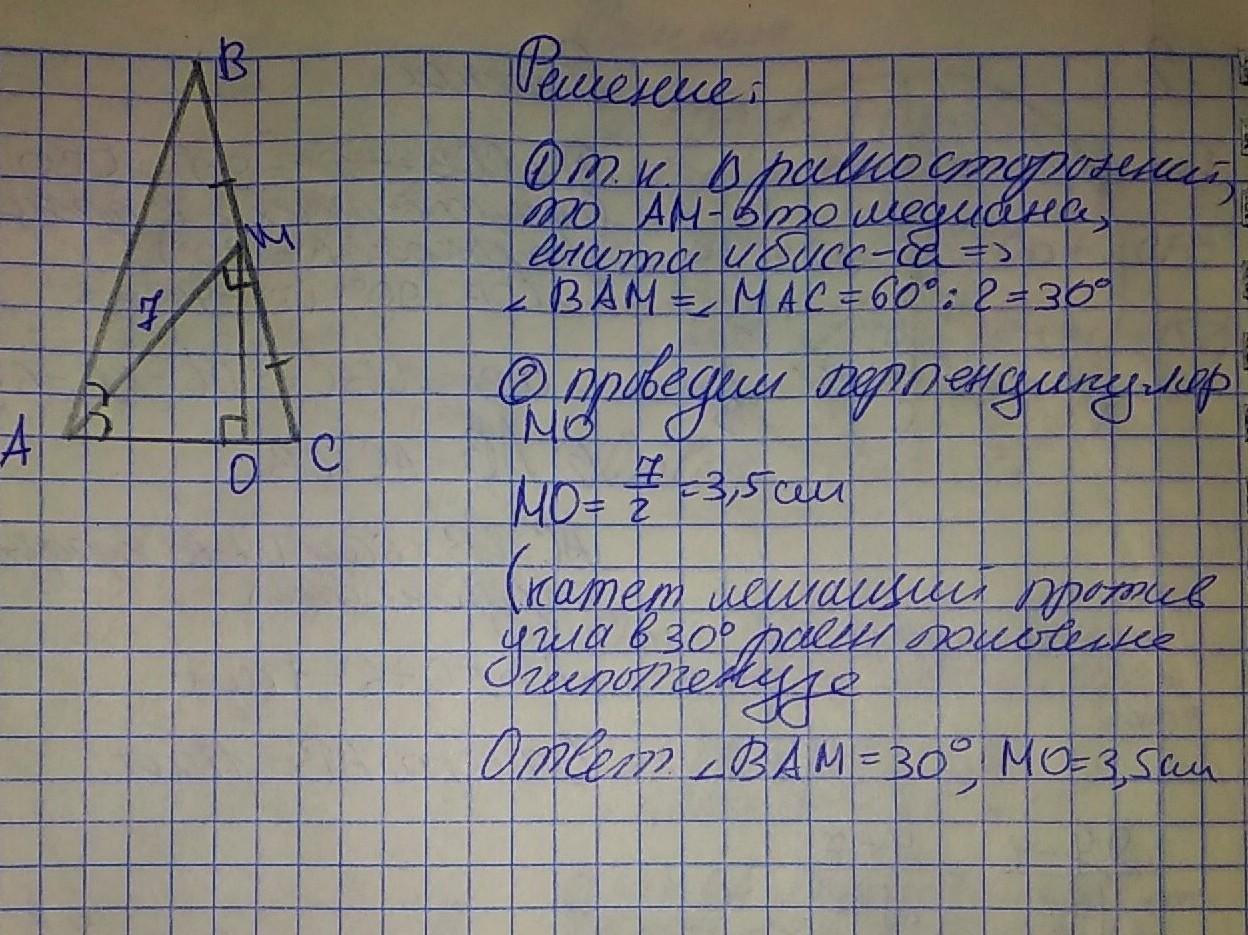 B
Решение:
① т.к. Δ равносторонний,
то AM - это медиана,
M
высота и бисс-са =>
7
∠BAM = ∠MAC = 60° : 2 = 30°
② проведём перпендикуляр
A
O
C
MO
MO = 7/2 = 3,5 см
(катет лежащий против
угла в 30° равен половине
гипотенузе
Ответ ∠BAM = 30°, MO = 3,5 см